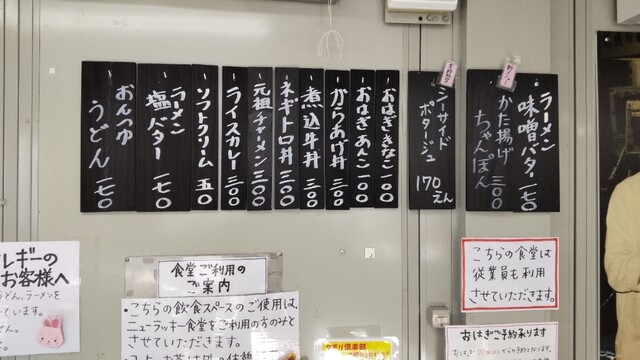 ラーメン
味噌バター 一七〇
かた揚げ
ちゃんぽん 三〇〇
シーサイド
ポタージュ
170えん
おはぎきなこ 一〇〇
おはぎあんこ 一〇〇
からあげ丼 三〇〇
煮込牛丼 三〇〇
ネギトロ丼 三〇〇
元祖チャーメン 三〇〇
ライスカレー 三〇〇
ソフトクリーム 五〇
ラーメン
塩バター 一七〇
おんつゆ
うどん 一七〇
レギーの
お客様へ
どん、ラーメンを
食堂ご利用の
ご案内
・こちらの飲食スペースのご使用は、
ニューラッキー食堂をご利用の方のみと
させていただきます。
こちらの食堂は
従業員も利用
させていただきます。
おはぎご予約承ります